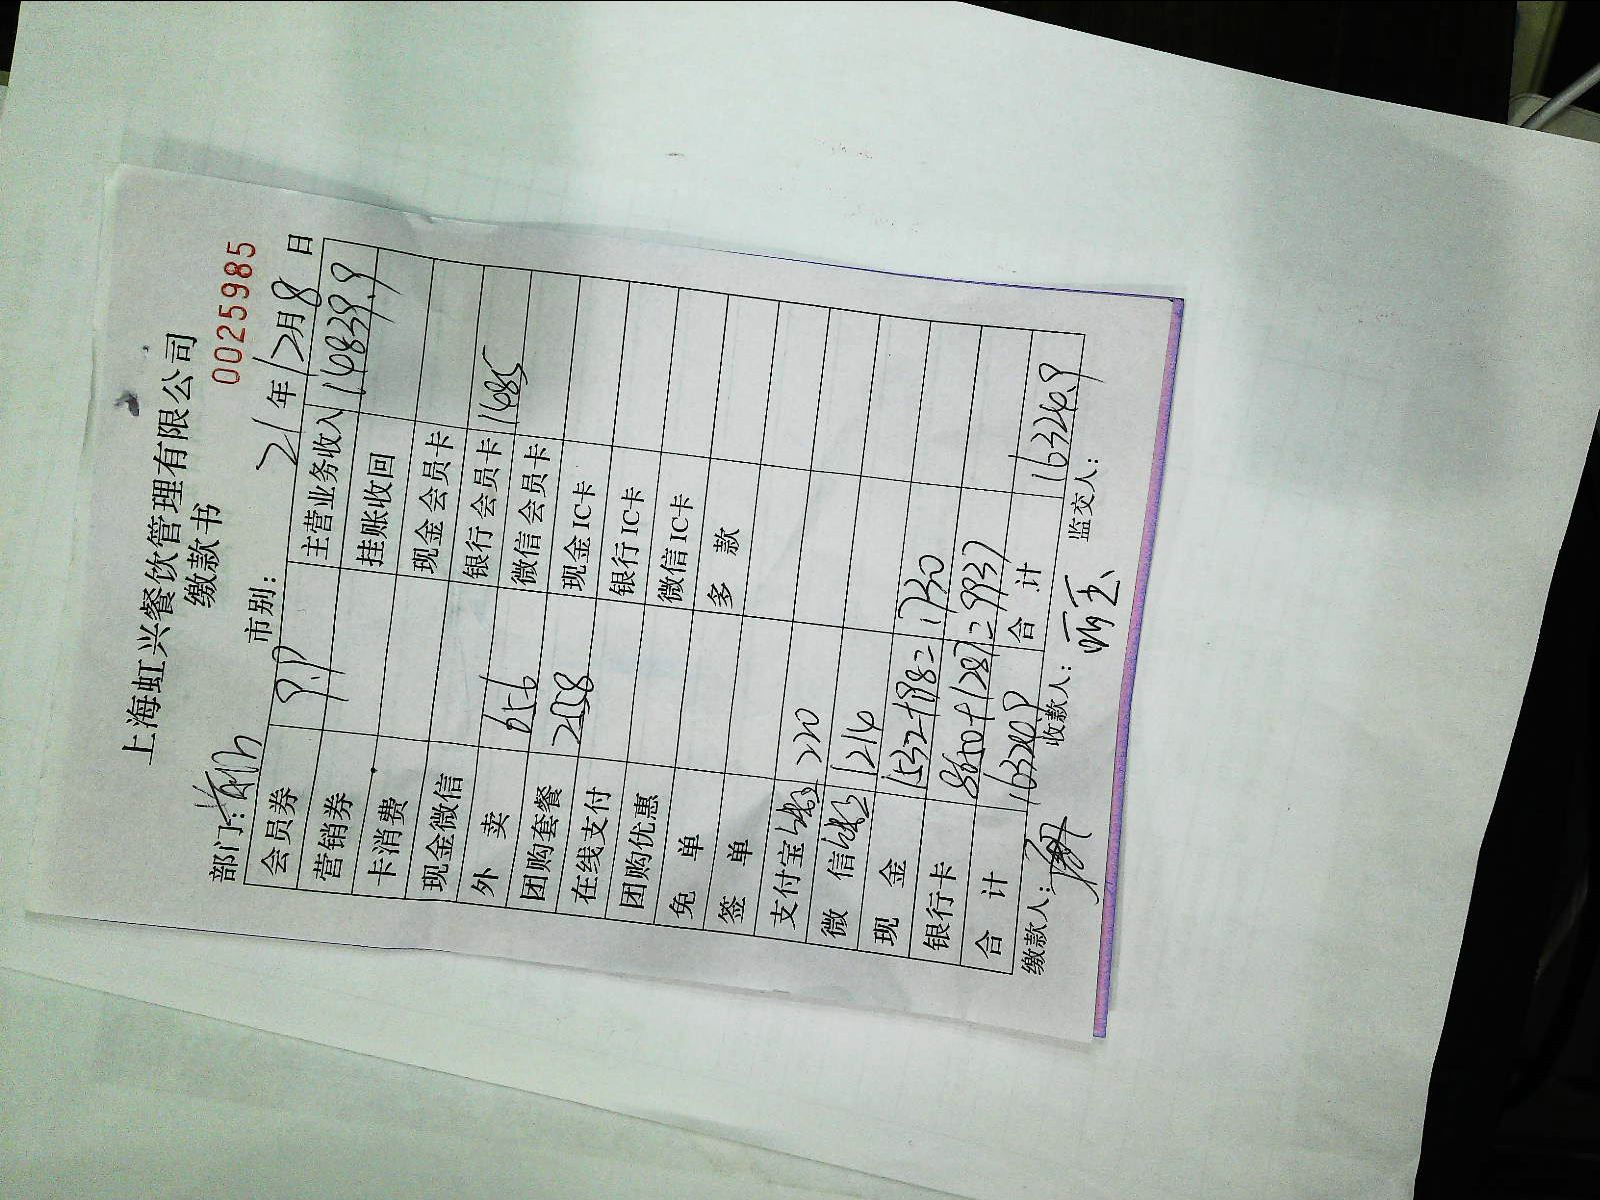 上海虹兴餐饮管理有限公司
缴款书
0025985
部门: 市别: 21年12月8日
会员券 9.9 主营业务收入 14839.9
营销券 挂账收回
卡消费 现金会员卡
现金微信 银行会员卡 1485
外卖 656 微信会员卡
团购套餐 2558 现金IC卡
在线支付 银行IC卡
团购优惠 微信IC卡
免单 多款
签单
支付宝 220
微信 1214
现金 1532+198=1730
银行卡 8650+1287=9937
合计 16324.9 合计 16324.9
缴款人: 收款人: 监交人: